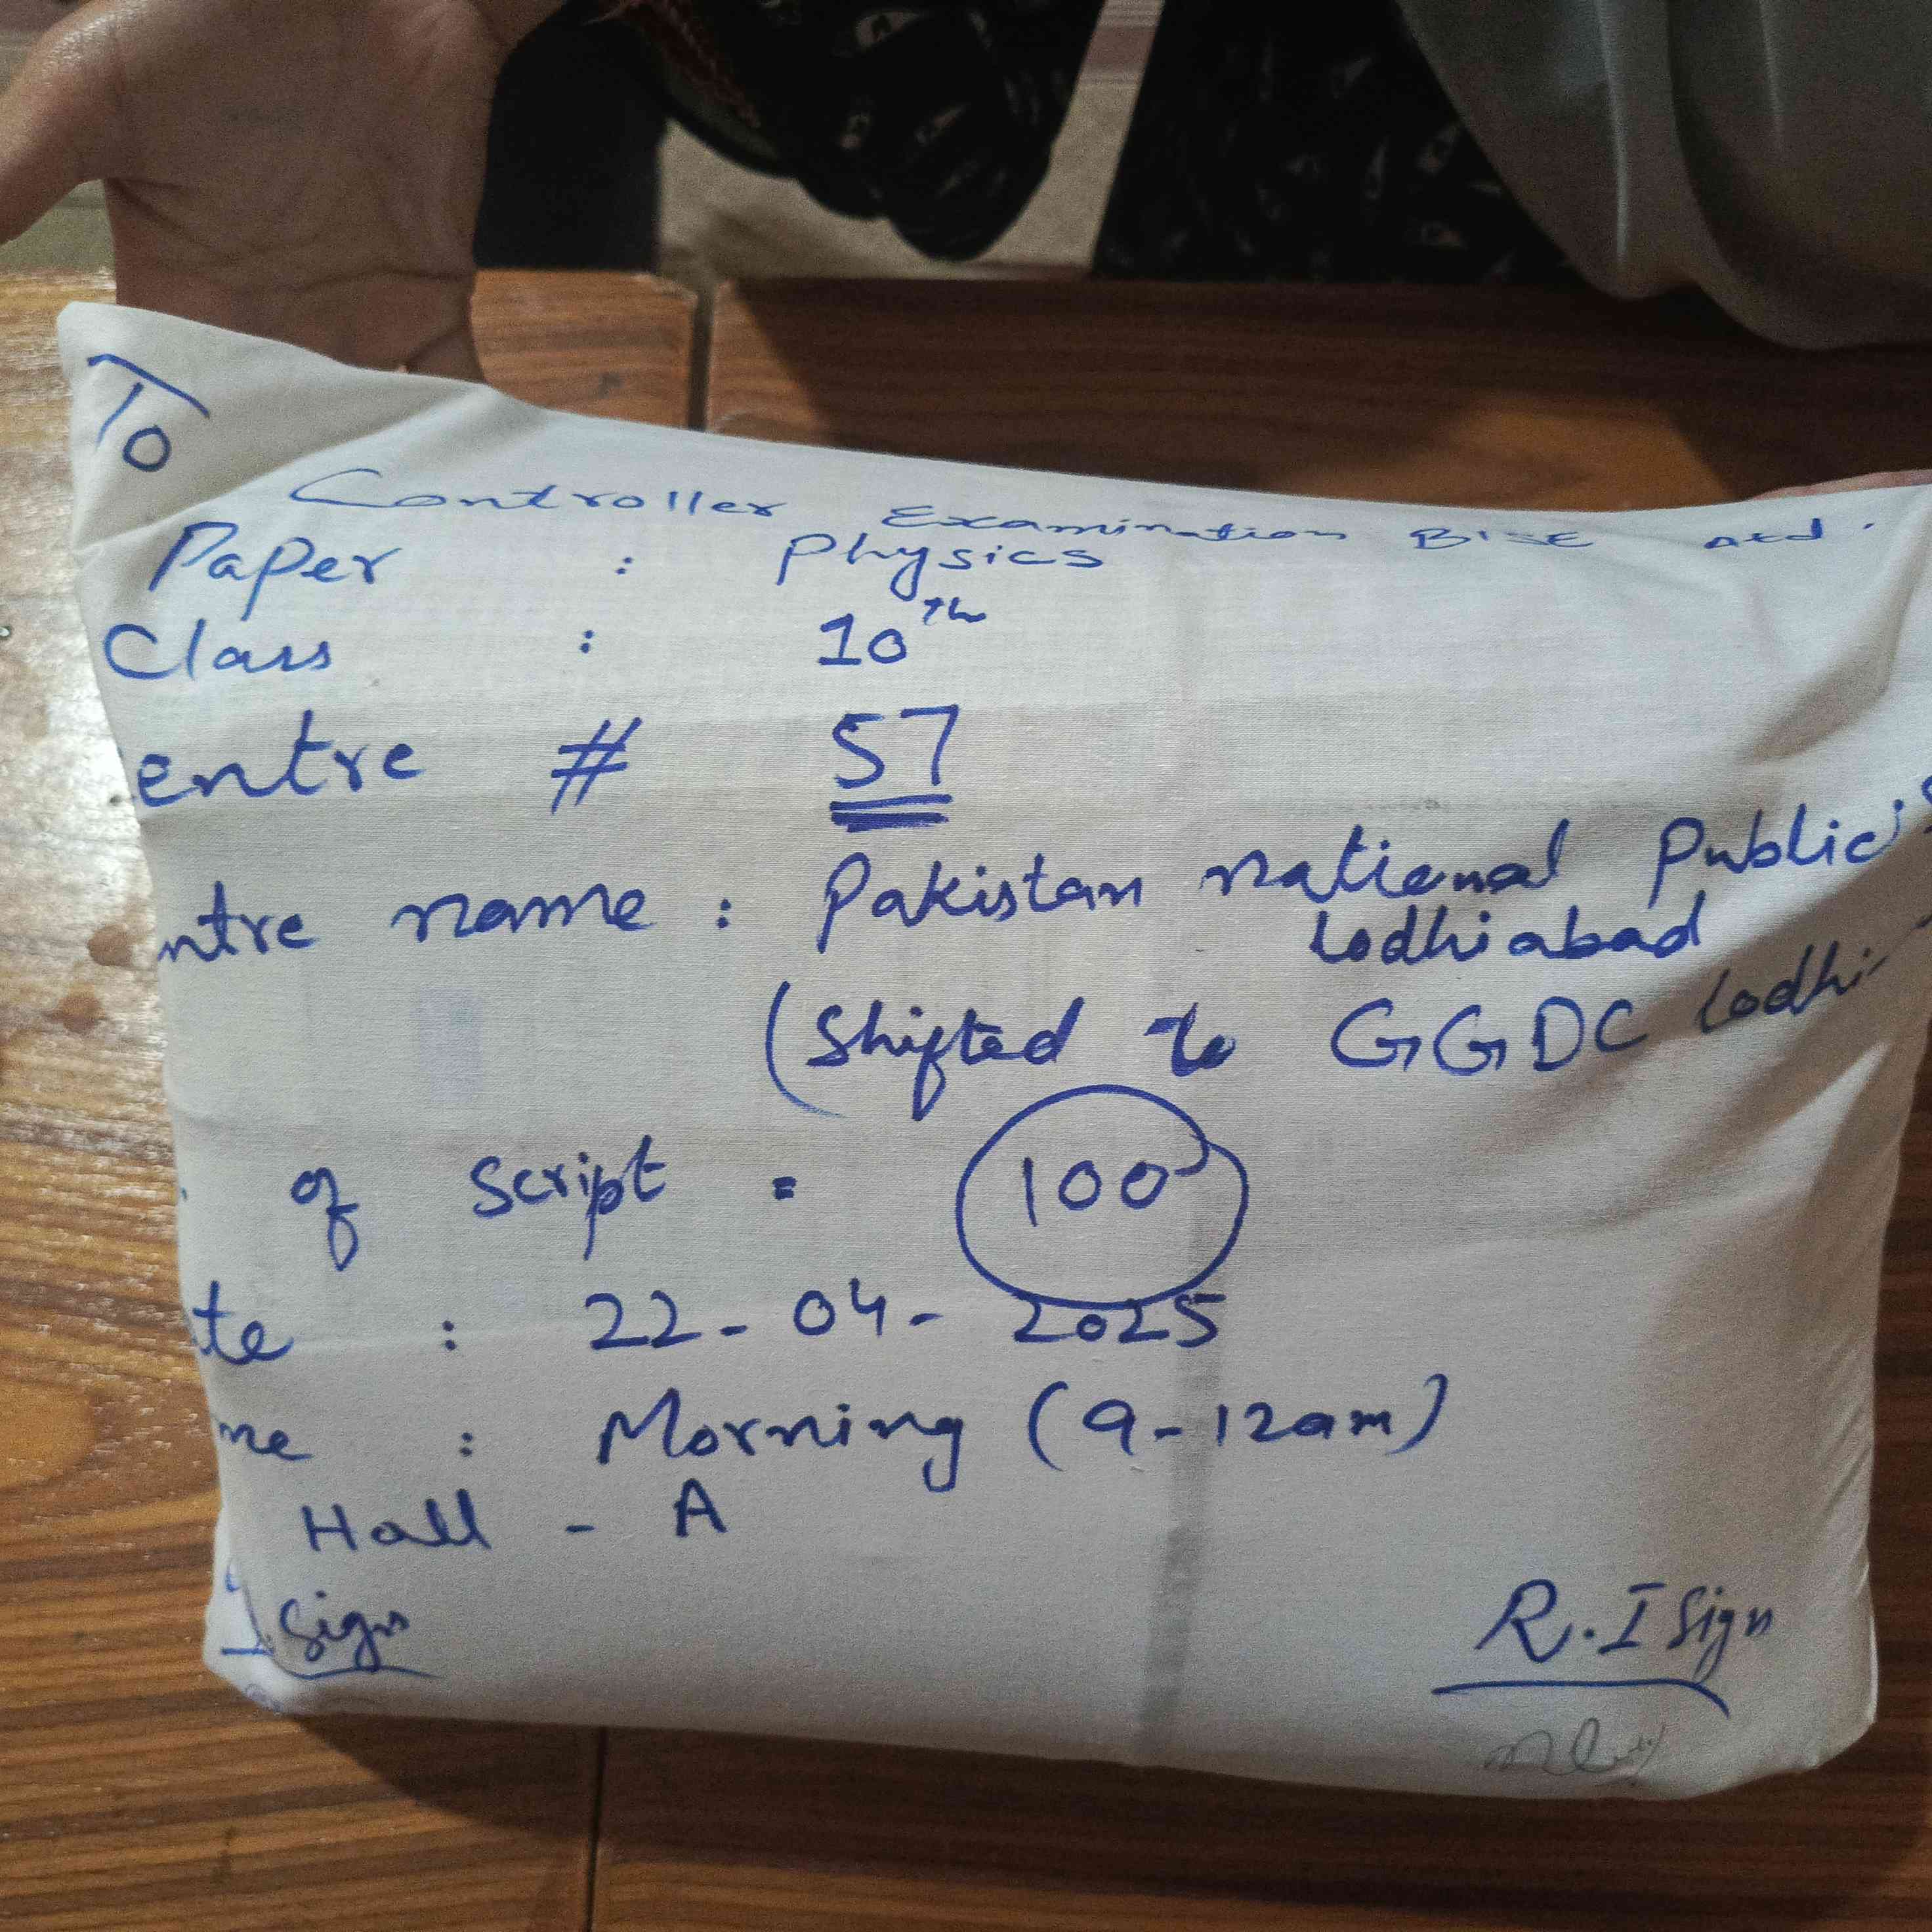 To
Controller Examination BISE Atd.
Paper : Physics
Class : 10th
entre # 57
ntre name : Pakistan national Public S
Lodhiabad
(Shifted to GGDC Lodhi
. of Script = 100
te : 22-04-2025
me : Morning (9-12am)
Hall - A
I. Sign
R.I Sign